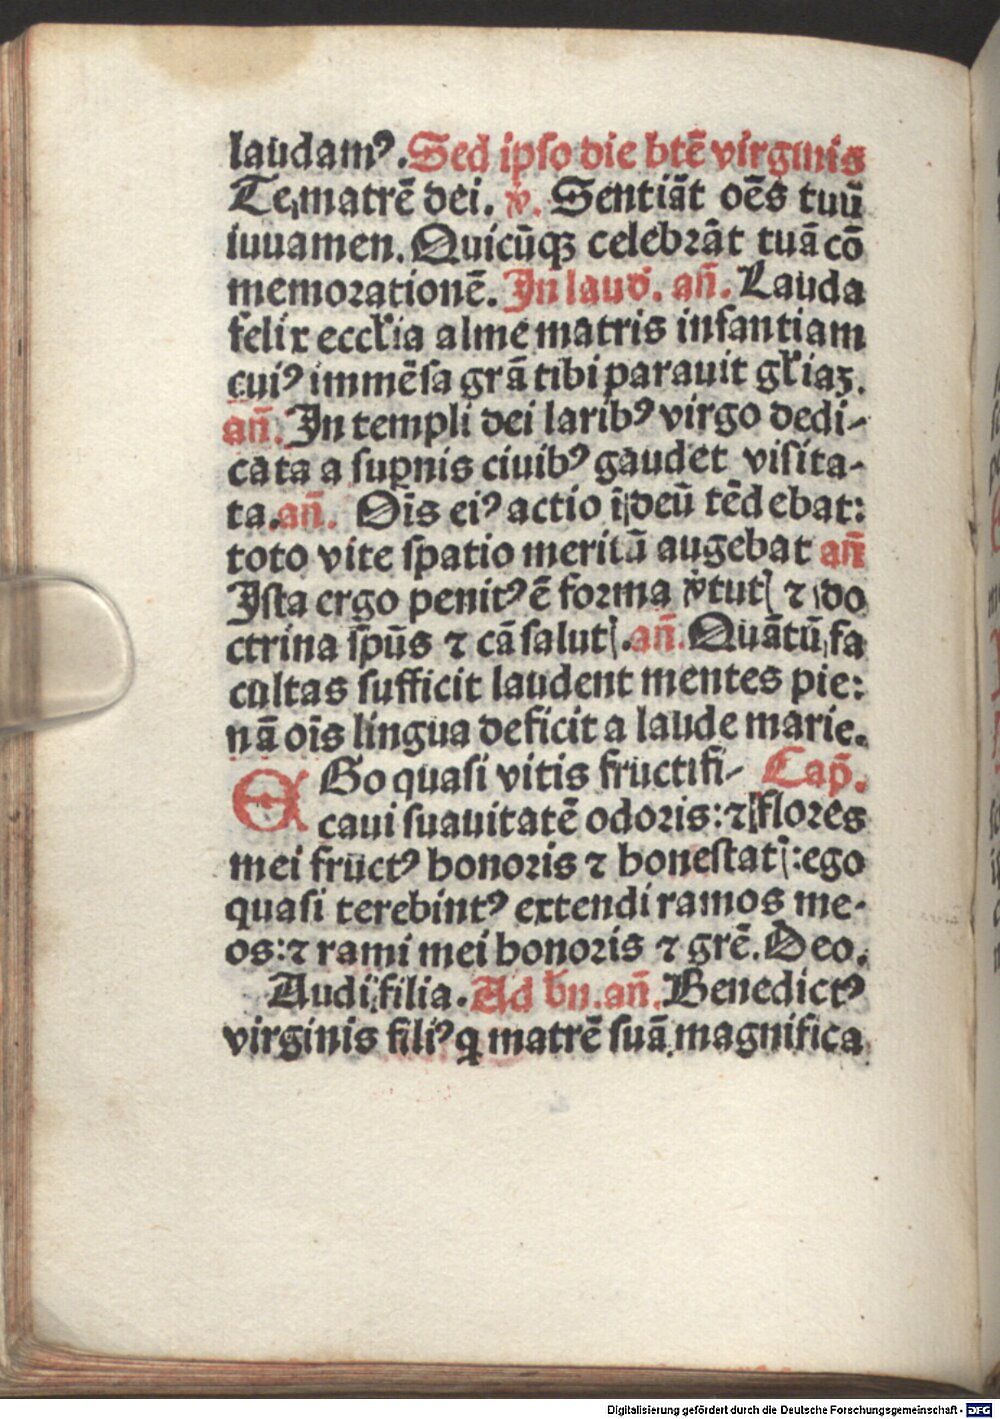 laudamꝰ. Sed ipso die btē virginis
Te matrē dei. ꝟ. Sentiāt oēs tuū
iuuamen. Quicūqꝫ celebrāt tuā cō
memorationē. In laud. añ. Lauda
felix eccľia alme matris infantiam
cuiꝰ immēsa grā tibi parauit gľiaꝫ.
añ. In templi dei laribꝰ virgo dedi-
cata a suꝑnis ciuibꝰ gaudet visita-
ta. añ. Oīs eiꝰ actio ī deū tēdebat:
toto vite spatio meritū augebat añ
Ista ergo penitꝰ ē forma ꝟtutꝭ ⁊ do
ctrina sp̄ūs ⁊ cā salutꝭ. añ. Quātū fa
cultas sufficit laudent mentes pie:
nā oīs lingua deficit a laude marie.
EGo quasi vitis fructifi- Cap̄.
caui suauitatē odoris: ⁊ flores
mei fructꝰ honoris ⁊ honestatꝭ: ego
quasi terebintꝰ extendi ramos me-
os: ⁊ rami mei honoris ⁊ grē. Deo.
Audi filia. Ad bn̄. añ. Benedictꝰ
virginis filiꝰ q̄ matrē suā magnifica
Digitalisierung gefördert durch die Deutsche Forschungsgemeinschaft - DFG